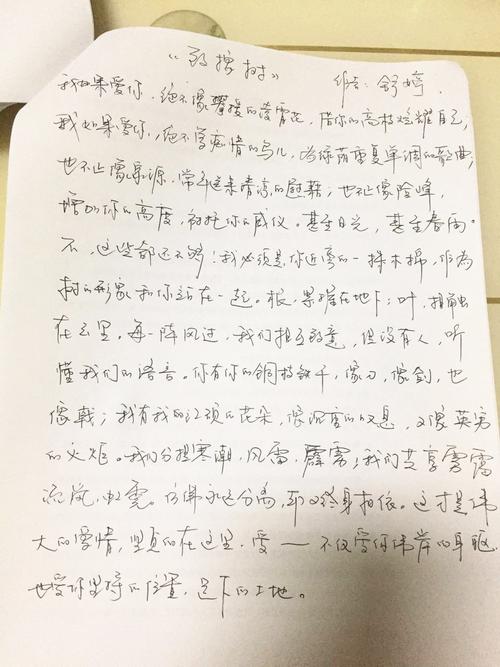 《致橡树》 作者：舒婷.
我如果爱你，绝不像攀援的凌霄花，借你的高枝炫耀自己；
我如果爱你，绝不学痴情的鸟儿，为绿荫重复单调的歌曲；
也不止像泉源，常年送来清凉的慰藉；也不止像险峰，
增加你的高度，衬托你的威仪。甚至日光，甚至春雨。
不，这些都还不够！我必须是你近旁的一株木棉，作为
树的形象和你站在一起。根，紧握在地下；叶，相触
在云里。每一阵风过，我们相互致意，但没有人，听
懂我们的语言。你有你的铜枝铁干，像刀，像剑，也
像戟；我有我的红硕的花朵，像沉重的叹息，又像英勇
的火炬。我们分担寒潮，风雷，霹雳；我们共享雾霭
流岚，虹霓。仿佛永远分离，却又终身相依。这才是伟
大的爱情，坚贞的在这里，爱——不仅爱你伟岸的身躯
也爱你坚持的位置，足下的土地。